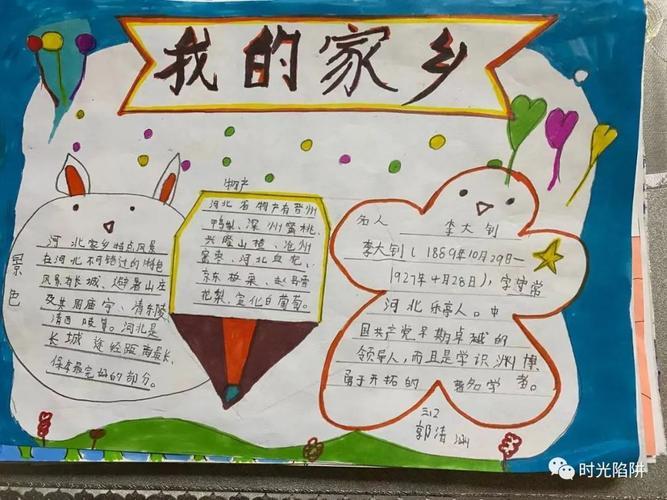 我的家乡
景色
河北家乡特点风景
在河北不错过的特色
风景有长城、避暑山庄
及其周庙宁、清东陵
清西陵等。河北是
长城途经距离最长,
保存最完好的部分。
物产
河北省物产有晋州
鸭梨、深州蜜桃、
兴隆山楂、沧州
金枣、河北血包、
京东板栗、赵县雪
花梨、宣化白葡萄。
名人 李大钊
李大钊(1889年10月29日—
1927年4月28日),字守常
河北乐亭人。中
国共产党早期卓越的
领导人,而且是学识渊博
勇于开拓的著名学者。
三12
郭涵
时光陷阱